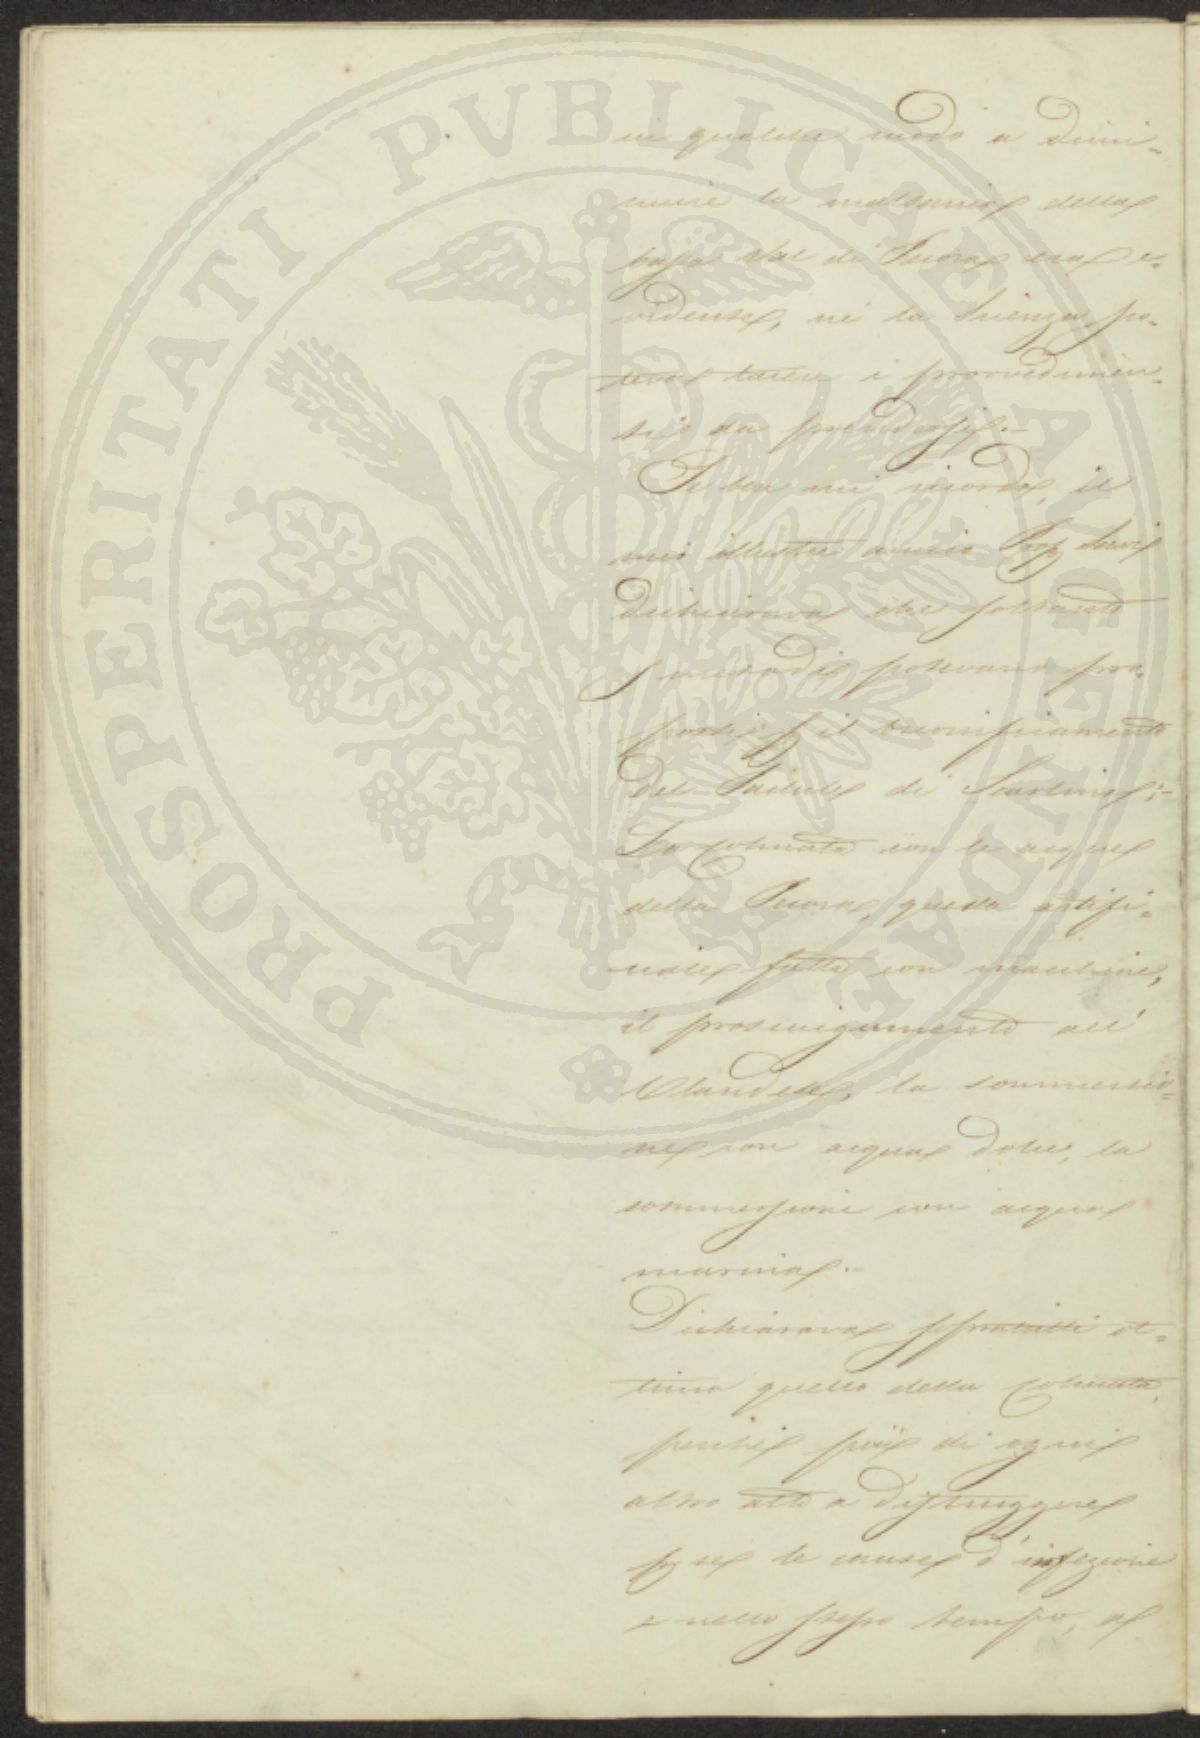 in qualche modo a dimi-
nuire la malsania della
bassa Val di Pecora era e-
vidente, nè la Scienza po-
teva tacere i provvedimen-
ti da prendersi.-
Se ben mi ricordo, il
mio illustre amico Prof. Savi
dichiarava che soltanto
5 metodi potevano pro-
porsi p il bonificamento
del Padule di Scarlino:-
La Colmata con le acque
della Pecora, quella artifi-
ciale fatta con macchine,
il prosciugamento all'
Olandese, la sommersio-
ne con acqua dolce, la
sommersione con acqua
marina.-
Dichiarava sopratutti ot-
timo quello della Colmata,
perchè più di ogni
altro atto a distruggere
le cause d'infezione
e nello stesso tempo, a
PROSPERITATI PVBLICAE AVGENDAE